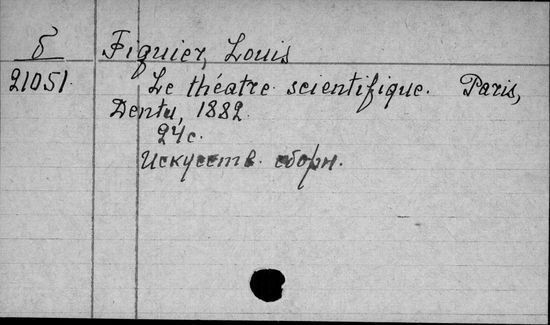 б Figuier, Louis
21051. Le théatre scientifique. Paris,
Dentu, 1882.
24 с.
Искусств. сборн.